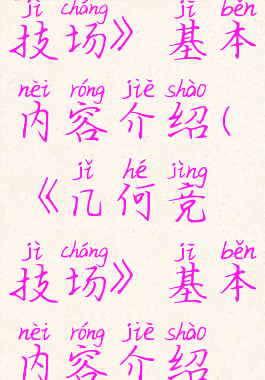 jì chǎng jī běn
技场》 基本
nèi róng jiè shào
内容介绍(
jǐ hé jìng
《几何竞
jì chǎng jī běn
技场》 基本
nèi róng jiè shào
内容介绍